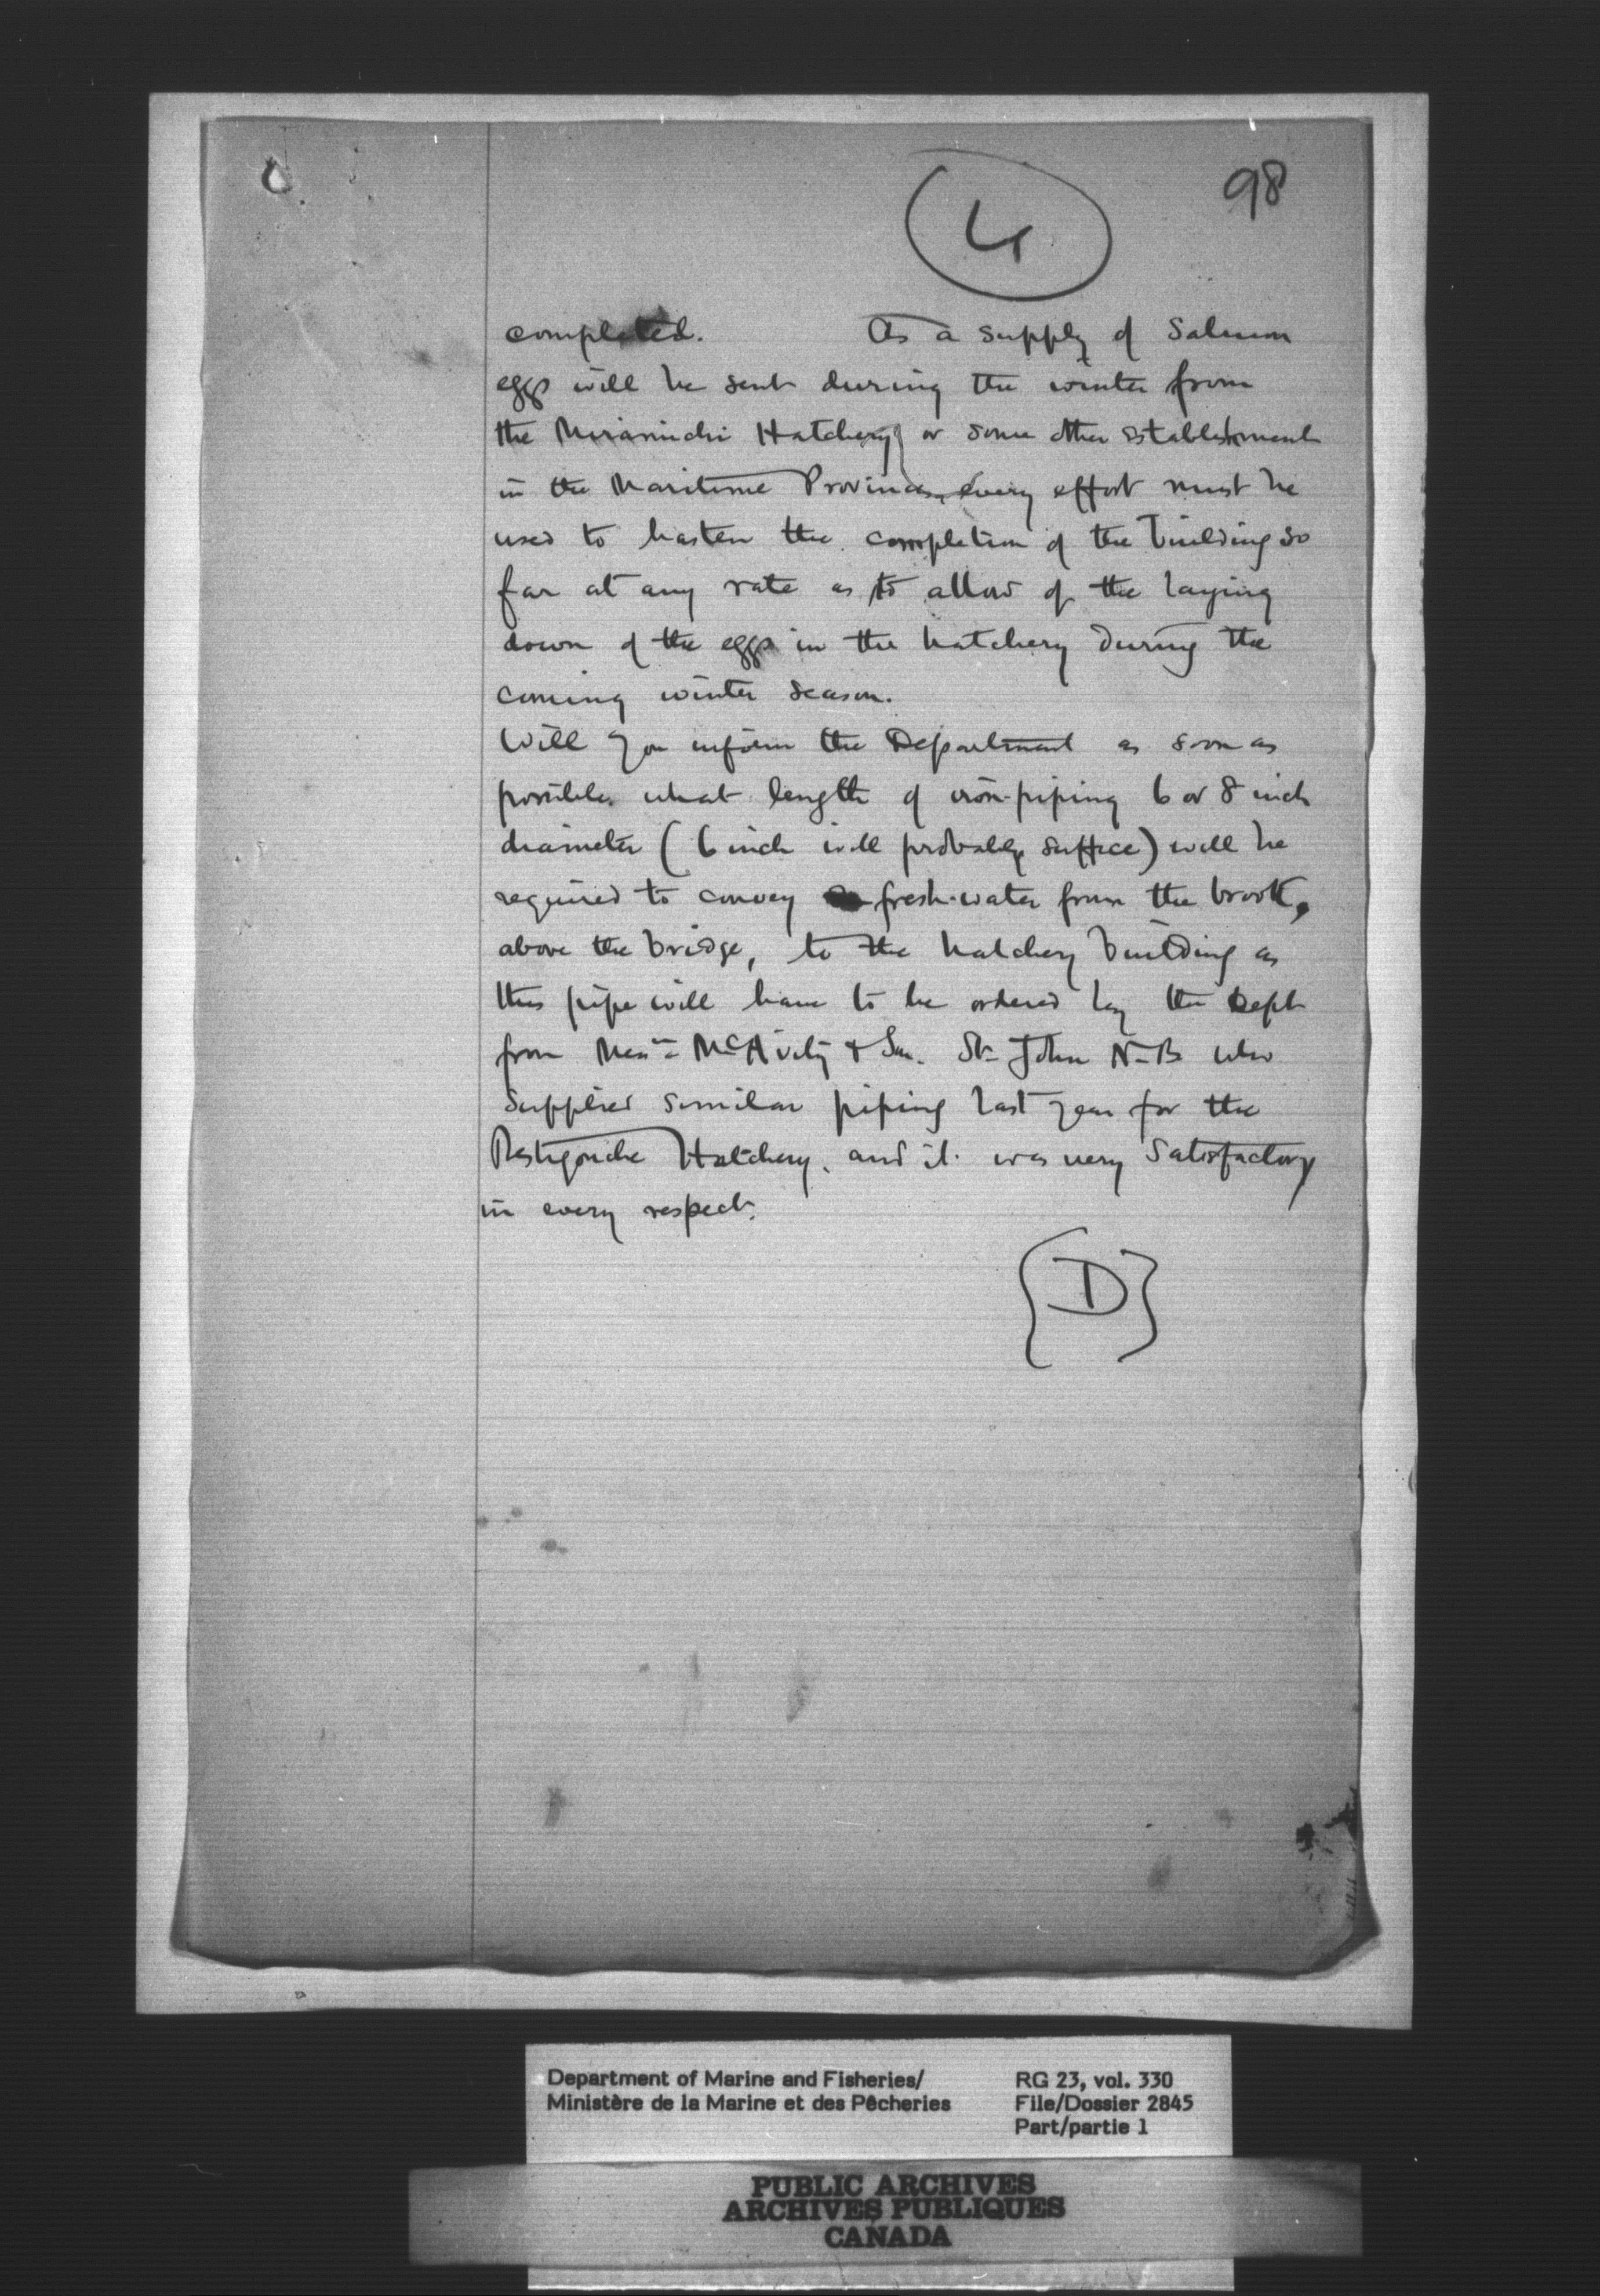 4
98
completed. As a supply of Salmon
eggs will be sent during the winter from
the Miramichi Hatchery or some other establishment
in the Maritime Provinces, every effort must be
used to hasten the completion of the building so
far at any rate as to allow of the laying
down of the eggs in the hatchery during the
coming winter season.
Will you inform the Department as soon as
possible what length of iron-piping 6 or 8 inch
diameter (6 inch will probably suffice) will be
required to convey fresh-water from the brook,
above the bridge, to the hatchery building as
this pipe will have to be ordered by the Dept
from Messrs McAvity & Son. St John N-B who
supplied similar piping last year for the
Restigouche Hatchery, and it was very satisfactory
in every respect.
{D}
Department of Marine and Fisheries/
Ministère de la Marine et des Pêcheries
RG 23, vol. 330
File/Dossier 2845
Part/partie 1
PUBLIC ARCHIVES
ARCHIVES PUBLIQUES
CANADA